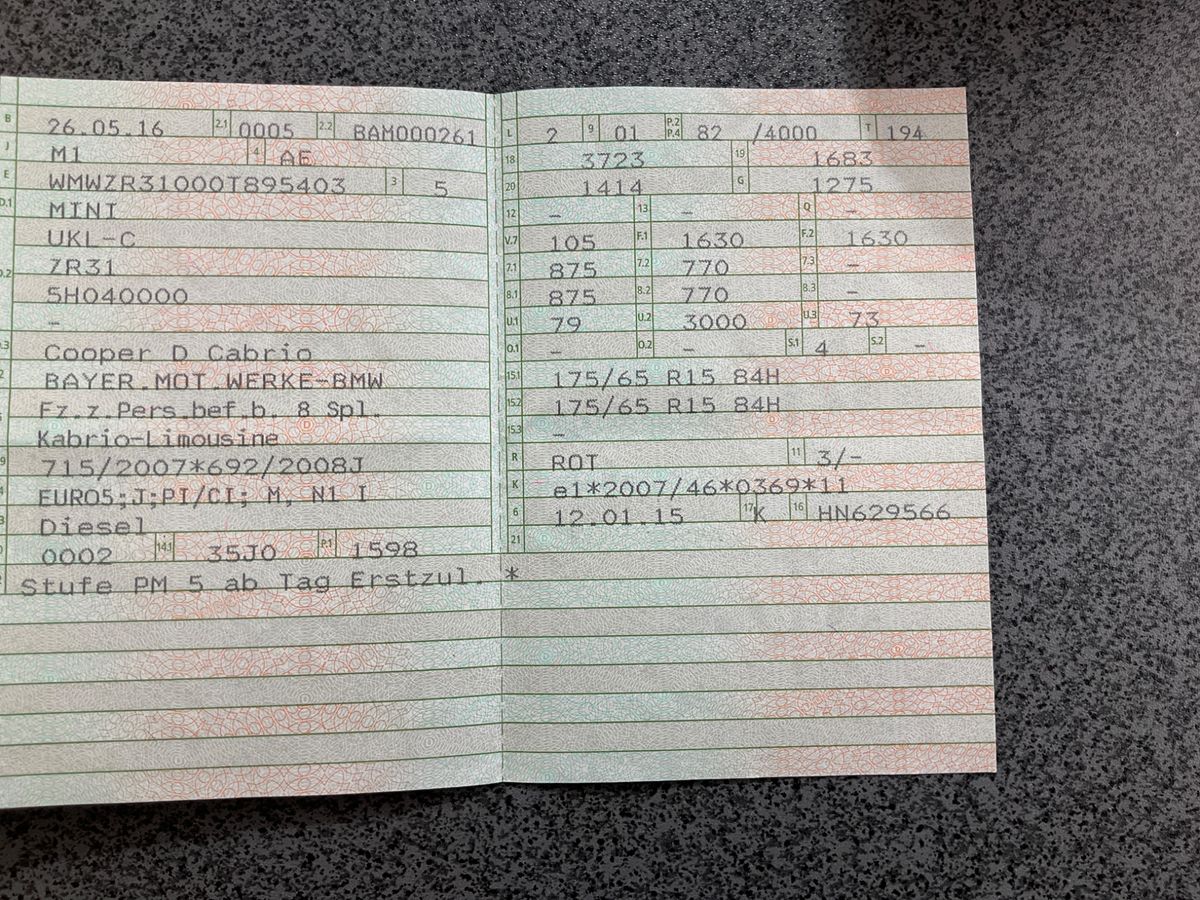 B 26.05.16 2.1 0005 2.2 BAM000261
J M1 4 AE
E WMWZR31000T895403 3 5
D.1 MINI
UKL-C
D.2 ZR31
5H040000
–
.3 Cooper D Cabrio
2 BAYER.MOT.WERKE-BMW
Fz.z.Pers.bef.b. 8 Spl.
Kabrio-Limousine
9 715/2007*692/2008J
EURO5;J;PI/CI; M, N1 I
Diesel
0002 14.1 35J0 P.1 1598
Stufe PM 5 ab Tag Erstzul. *
L 2 9 01 P.2 P.4 82 /4000 T 194
18 3723 19 1683
20 1414 G 1275
12 – 13 – Q –
V.7 105 F.1 1630 F.2 1630
7.1 875 7.2 770 7.3 –
8.1 875 8.2 770 8.3 –
U.1 79 U.2 3000 U.3 73
O.1 – O.2 – S.1 4 S.2 –
15.1 175/65 R15 84H
15.2 175/65 R15 84H
15.3 –
R ROT 11 3/–
K e1*2007/46*0369*11
6 12.01.15 17 K 16 HN629566
21